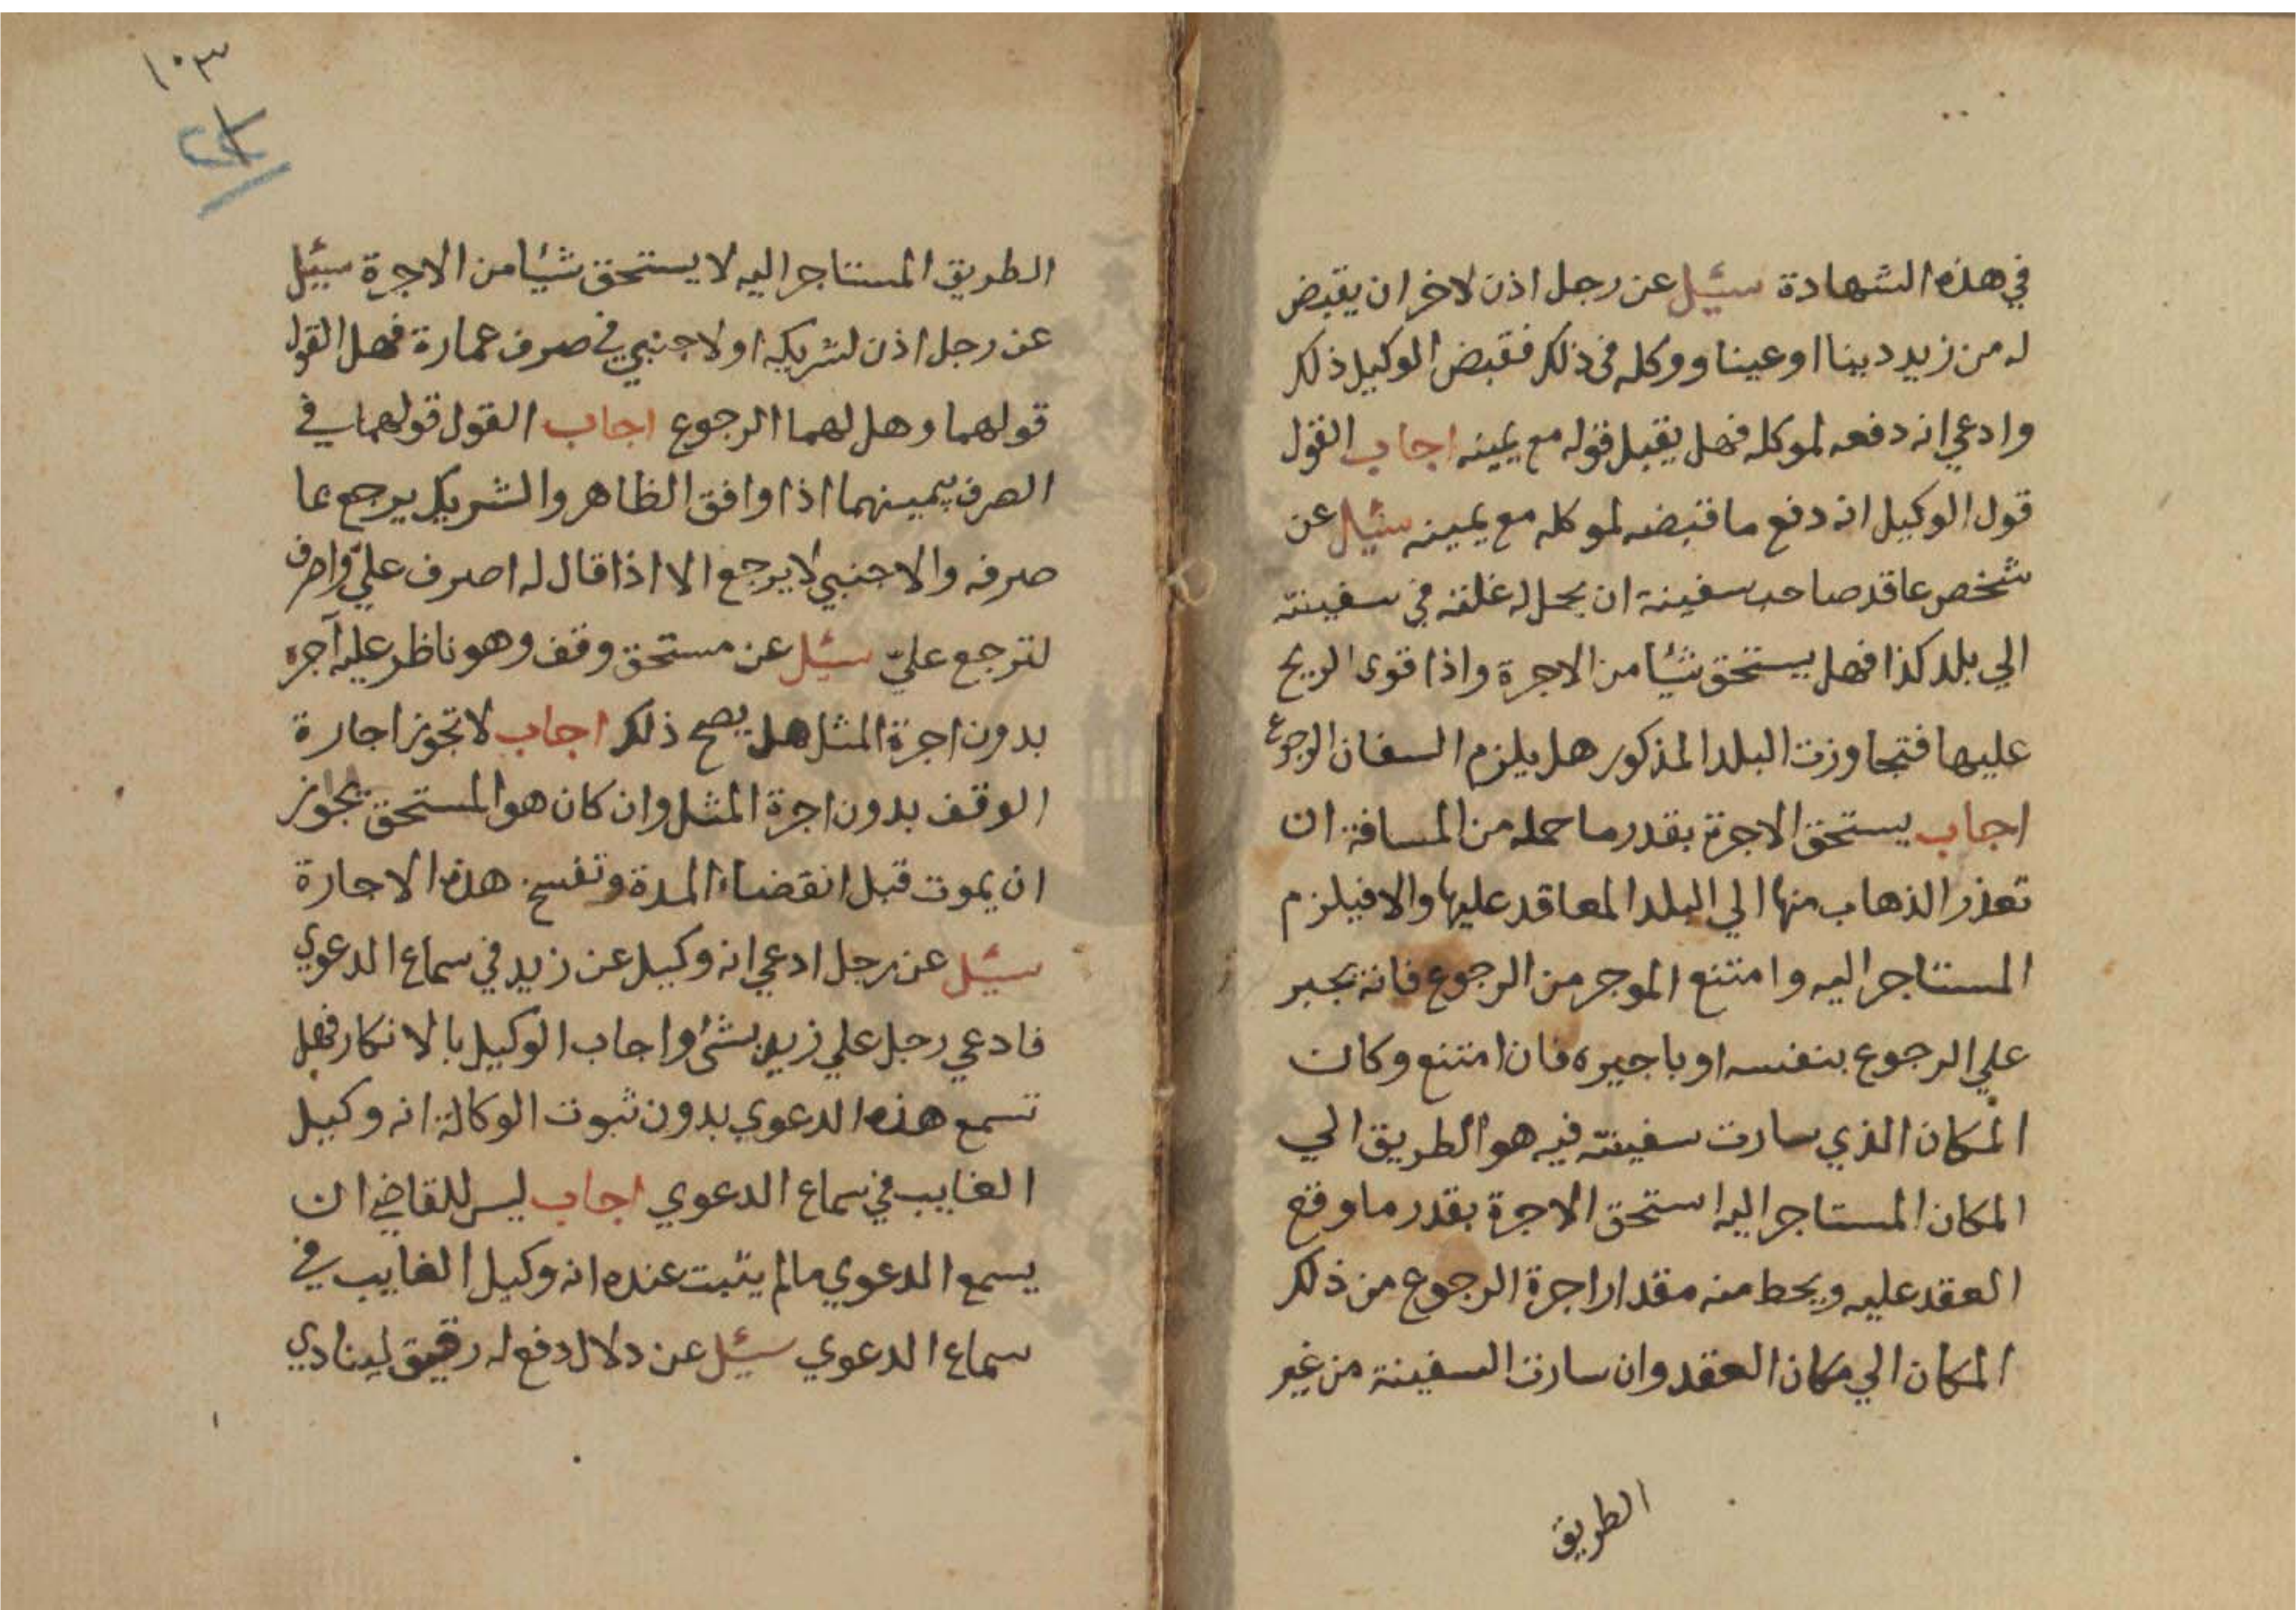 في هذه الشهادة سئيل عن رجل اذن لاخر ان يقبض
له من زيد دينا او عينا ووكله في ذلك فقبض الوكيل ذلك
وادعي انه دفعه لموكله فهل يقبل قوله مع يمينه اجاب القول
قول الوكيل انه دفع ما قبضه لموكله مع يمينه سئيل عن
شخص عاقد صاحب سفينة ان يحمل له غلته في سفينته
الي بلد كذا فهل يستحق شيئا من الاجرة واذا قوي الريح
عليها فتجاوزت البلد المذكور هل يلزم السفان الرجوع
اجاب يستحق الاجرة بقدر ما حمله من المسافة ان
تعذر الذهاب منها الي البلد المعاقد عليها والا فيلزم
المستاجر اليه وامتنع الموجر من الرجوع فانه يجبر
علي الرجوع بنفسه او باجيره فان امتنع وكان
المكان الذي سارت سفينته فيه هو الطريق الي
المكان المستاجر اليه استحق الاجرة بقدر ما وقع
العقد عليه ويحط منه مقدار اجرة الرجوع من ذلك
المكان الي مكان العقد وان سارت السفينة من غير
الطريق
١٠٣
الطريق المستاجر اليه لا يستحق شيئا من الاجرة سئيل
عن رجل اذن لشريكه او لاجنبي في صرف عمارة فهل القول
قولهما وهل لهما الرجوع اجاب القول قولهما في
الصرف بيمينهما اذا وافق الظاهر والشريك يرجع بما
صرفه والاجنبي لا يرجع الا اذا قال له اصرف عليّ واصرف
لترجع عليّ سئيل عن مستحق وقف وهو ناظر عليه آجره
بدون اجرة المثل هل يصح ذلك اجاب لا تجوز اجارة
الوقف بدون اجرة المثل وان كان هو المستحق بجواز
ان يموت قبل انقضاء المدة وتفسخ هذه الاجارة
سئيل عن رجل ادعي انه وكيل عن زيد في سماع الدعوي
فادعي رجل علي زيد بشئ واجاب الوكيل بالانكار فهل
تسمع هذه الدعوي بدون ثبوت الوكالة انه وكيل
الغايب في سماع الدعوي اجاب ليس للقاضي ان
يسمع الدعوي مالم يثبت عنده انه وكيل الغايب في
سماع الدعوي سئيل عن دلال دفع له رقيق لينادي